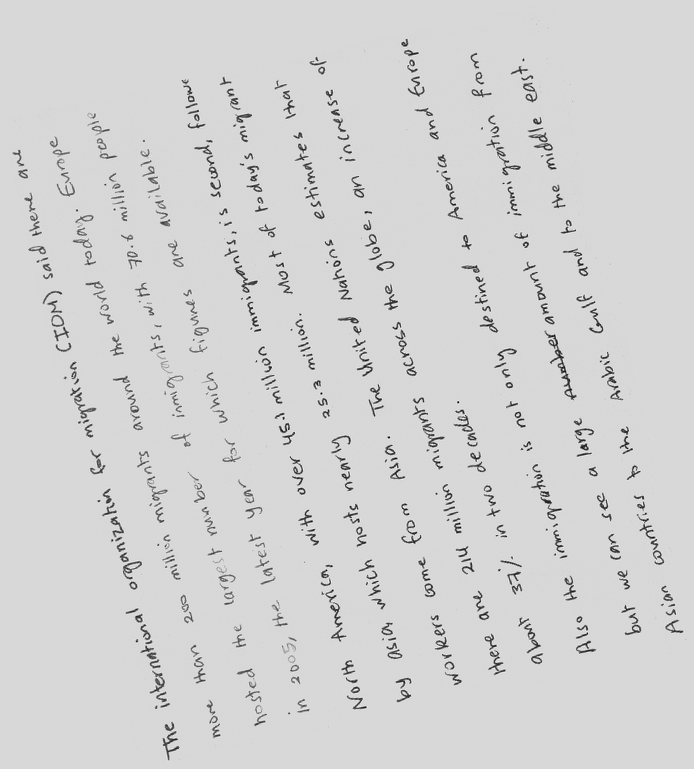 The international organization for migration (IOM) said there are
more than 200 million migrants around the world today. Europe
hosted the largest number of immigrants, with 70.6 million people
in 2005, the latest year for which figures are available.
North America, with over 45.1 million immigrants, is second, followe
by asia which hosts nearly 25.3 million. Most of today's migrant
workers come from Asia. The United Nations estimates that
there are 214 million migrants across the globe, an increase of
about 37% in two decades.
Also the immigration is not only destined to America and Europe
but we can see a large number amount of immigration from
Asian countries to the Arabic Gulf and to the middle east.